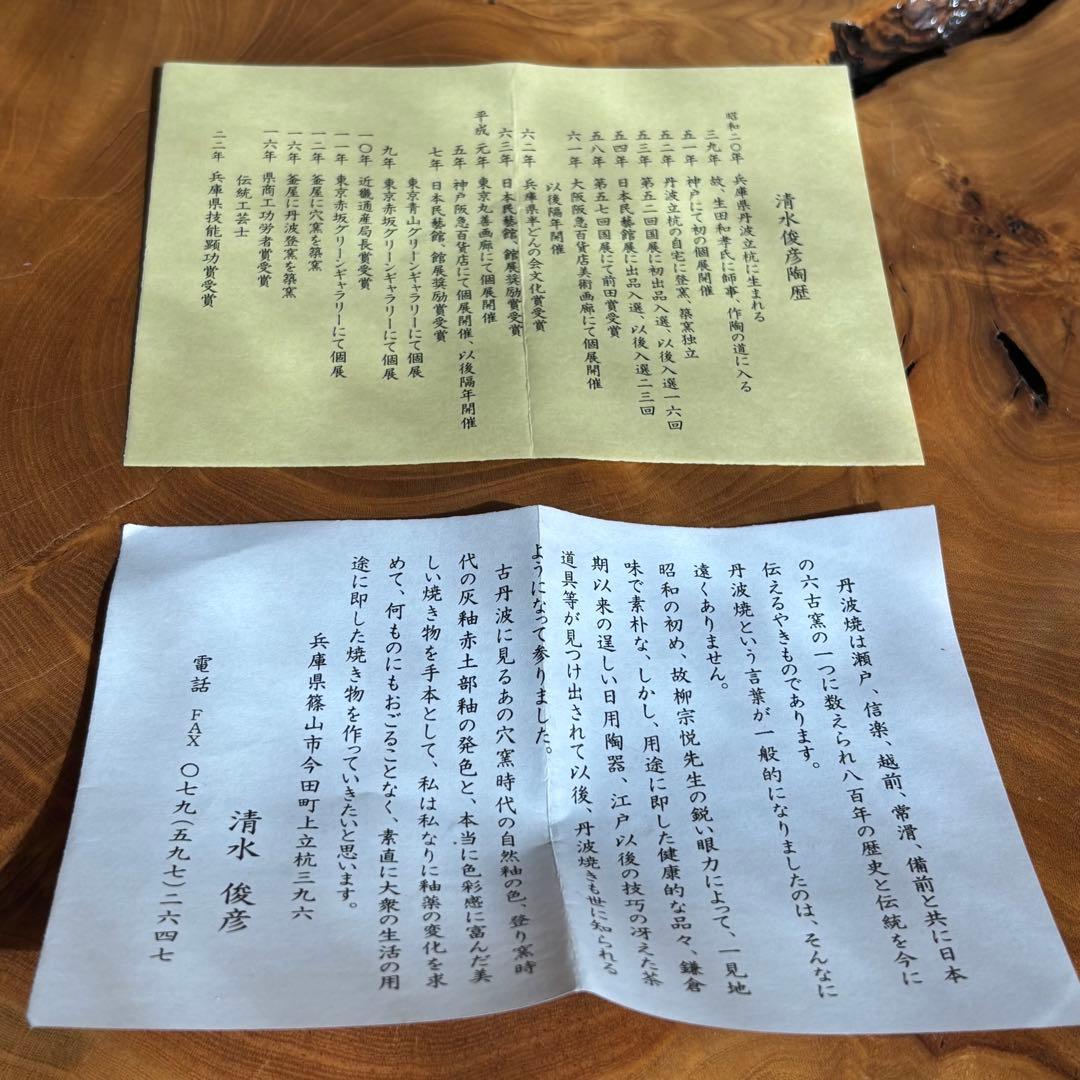 清水俊彦陶歴
昭和二〇年 兵庫県丹波立杭に生まれる
三九年 故、生田和孝氏に師事、作陶の道に入る
五一年 神戸にて初の個展開催
五二年 丹波立杭の自宅に登窯、築窯独立
五三年 第五二回国展に初出品入選、以後入選一六回
五四年 日本民藝館展に出品入選、以後入選二三回
五八年 第五七回国展にて前田賞受賞
六一年 大阪阪急百貨店美術画廊にて個展開催
以後隔年開催
六二年 兵庫県半どんの会文化賞受賞
六三年 日本民藝館、館展奨励賞受賞
平成 元年 東京丸善画廊にて個展開催
五年 神戸阪急百貨店にて個展開催、以後隔年開催
七年 日本民藝館、館展奨励賞受賞
東京青山グリーンギャラリーにて個展
九年 東京赤坂グリーンギャラリーにて個展
一〇年 近畿通産局長賞受賞
一一年 東京赤坂グリーンギャラリーにて個展
一二年 釜屋に穴窯を築窯
一六年 釜屋に丹波登窯を築窯
一六年 県商工功労者賞受賞
伝統工芸士
二二年 兵庫県技能顕功賞受賞
丹波焼は瀬戸、信楽、越前、常滑、備前と共に日本
の六古窯の一つに数えられ八百年の歴史と伝統を今に
伝えるやきものであります。
丹波焼という言葉が一般的になりましたのは、そんなに
遠くありません。
昭和の初め、故柳宗悦先生の鋭い眼力によって、一見地
味で素朴な、しかし、用途に即した健康的な品々、鎌倉
期以来の逞しい日用陶器、江戸以後の技巧の冴えた茶
道具等が見つけ出されて以後、丹波焼きも世に知られる
ようになって参りました。
古丹波に見るあの穴窯時代の自然釉の色、登り窯時
代の灰釉赤土部釉の発色と、本当に色彩感に富んだ美
しい焼き物を手本として、私は私なりに釉薬の変化を求
めて、何ものにもおごることなく、素直に大衆の生活の用
途に即した焼き物を作っていきたいと思います。
兵庫県篠山市今田町上立杭三九六
清水 俊彦
電話 FAX 〇七九(五九七)二六四七